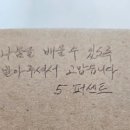 나눔을 배울 수 있도록
받아주셔서 고맙습니다
5 퍼센트